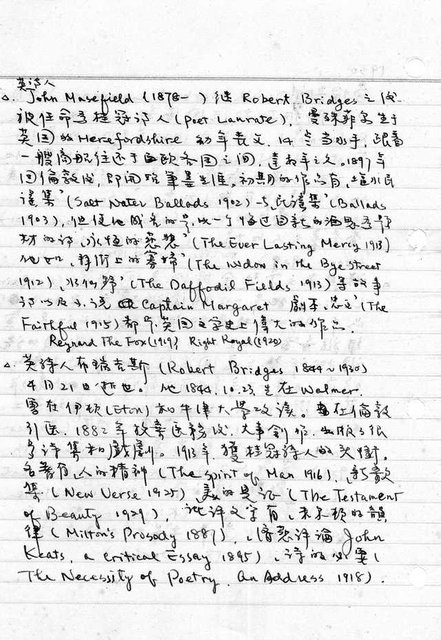 英诗人
△. John Masefield (1878- ) 继 Robert Bridges 之後
被任命为桂冠诗人 (Poet Laurate), 曼殊菲尔生于
英国的 Herefordshire 幼年丧父, 14 岁当水手, 跟着
一般商船往还于西欧各国之间, 1897年
回伦敦後, 即开始笔墨生涯. 初期的作品有
谣集' (Salt Water Ballads 1902) 与民谣集' (Ballads
1903),
材的诗, 永恒的慈悲' (The Ever Lasting Mercy 1913)
他如, 街上的寡妇' (The Widow in the Bye Street
1912), 水仙 (The Daffodil Fields 1913) 等故事
诗以及小说 Captain Margaret 剧本, 忠 (The
Faithful 1915) 都为英国文学史上伟大的作品.
Reynard The Fox (1919) Right Royal (1920)
△. 英诗人布瑞吉斯 (Robert Bridges 1844~1930)
4月21日逝世. 他 1844.10.23 生在 Walmer.
曾在伊顿 (Eton) 和牛津大學攻读. 在伦敦
行医. 1882 年放弃医务後, 大事创作, 出版了很
多诗集和戲劇. 1913年獲桂冠诗人的头衔.
名著有, 人的精神 (The spirit of Man 1916), 新歌
集 (New Verse 1925) 美的见证 (The Testament
of Beauty 1929), 论评文字有, 米尔顿的韻
律 (Milton's Prosody 1887), 评论 John
Keats, a critical Essay 1895), 诗的必要 (
The Necessity of Poetry. An Address 1918).